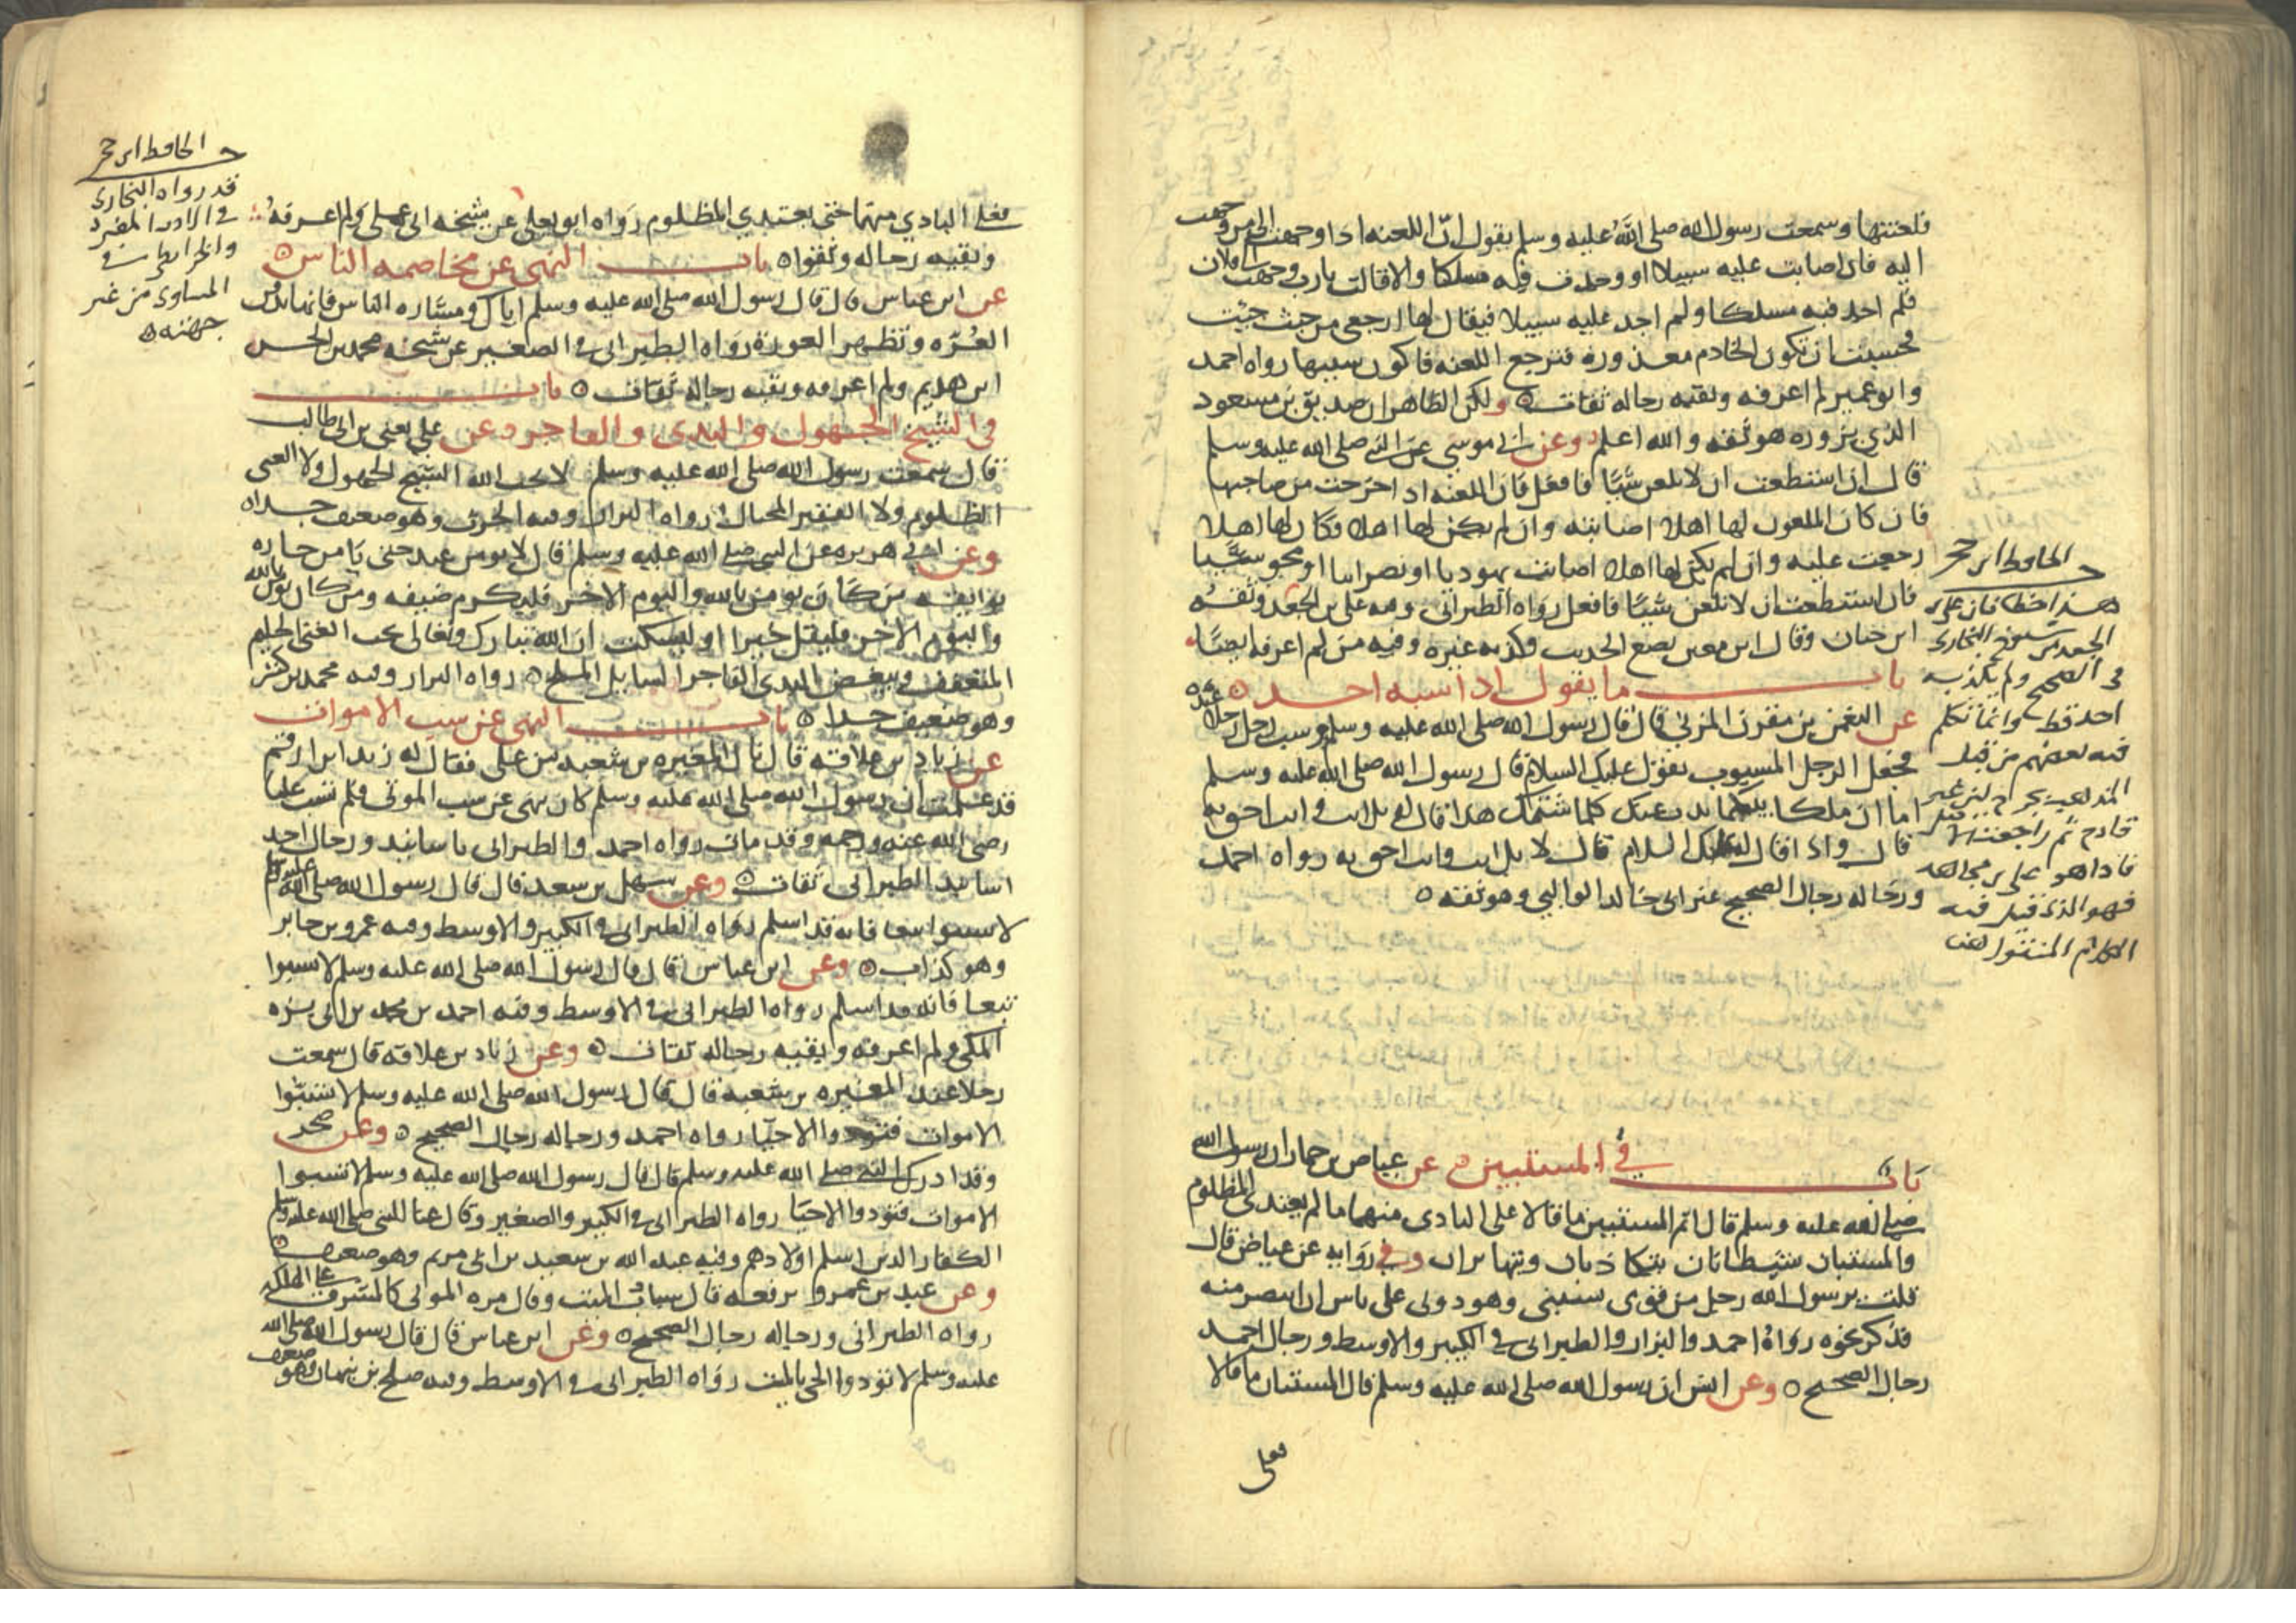 فلعنتها وسمعت رسول الله صلى الله عليه وسلم يقول ان اللعنه اذا وجهت الى من وجهت
اليه فان اصابت عليه سبيلا او وجدت فيه مسلكا والا قالت يارب وجهت الى فلان
فلم اجد فيه مسلكا ولم اجد عليه سبيلا فيقال لها ارجعى من حيث جئت
فخشيت ان تكون الخادم معذورة فترجع اللعنه فاكون سببها رواه احمد
وابو عمير لم اعرفه وبقيه رجاله ثقات ولكن الظاهر ان صديق بن مسعود
الذي يزوره هو ثقه والله اعلم وعن ابي موسى عن النبي صلى الله عليه وسلم
قال ان استطعت ان لا تلعن شيًا فافعل فان اللعنه اذا خرجت من صاحبها
فان كان الملعون لها اهلا اصابته وان لم يكن لها اهلا وكان لها اهلا
رجعت عليه وان لم يكن لها اهلا اصابت يهوديا او نصرانيا او مجوسيًا
فان استطعت ان لا تلعن شيًا فافعل رواه الطبرانى وفيه على بن الجعد وثقه
ابن حبان وقال ابن معين يضع الحديث وكذبه غيره وفيه من لم اعرفه ايضًا
باب ما يقول اذا سبه احد
عن النعمن بن مقرن المزني قال قال رسول الله صلى الله عليه وسلم وسب رجل رجلا عنده
فجعل الرجل المسبوب يقول عليك السلام قال رسول الله صلى الله عليه وسلم
اما ان ملكا بينكما يذب عنك كلما شتمك هذا قال له بل انت وانت احق به
قال واذا قال له عليك السلام قال لا بل انت وانت احق به رواه احمد
ورجاله رجال الصحيح غير ابى خالد الوالبي وهو ثقه
باب في المستبين عن عياض بن حمار ان رسول الله
صلى الله عليه وسلم قال اثم المستبين ما قالا على البادى منهما ما لم يعتدى المظلوم
والمستبان شيطانان يتكاذبان ويتهاتران وفي روايه عن عياض قال
قلت يرسول الله رجل من قومى يشتمنى وهو دونى على باس ان انتصر منه
فذكر نحوه رواه احمد والبزار والطبرانى فى الكبير والاوسط ورجال احمد
رجال الصحيح وعن انس ان رسول الله صلى الله عليه وسلم قال المستبان ما قالا
فعلى
الحافظ ابن حجر
هذا خطا فان على بن
الجعد من شيوخ البخارى
فى الصحيح ولم يكذبه
احد قط وانما تكلم
فيه بعضهم من قبل
المذهب
قادح ثم راجعت
فاذا هو على بن مجاهد
فهو الذى قيل فيه
الكلام المنقول هنا
فعلى البادي منهما حتى يعتدي المظلوم رواه ابو يعلى عن شيخه ابى على ولم اعرفه
وبقيه رجاله وثقوا باب النهى عن مخاصمه الناس
عن ابن عباس قال قال رسول الله صلى الله عليه وسلم اياك ومشاره الناس فانها تدفن
العُرّه وتظهر العورة رواه الطبرانى فى الصغير عن شيخه محمد بن الحسن
ابن هديم ولم اعرفه وبقيه رجاله ثقات باب
فى الشيخ الجهول والبذى والفاجر وعن على يعنى بن ابى طالب
قال سمعت رسول الله صلى الله عليه وسلم لا يحب الله الشيخ الجهول ولا الغنى
الظلوم ولا الفقير المختال رواه البزار وفيه الحرث وهو ضعيف جدا
وعن ابى هريره عن النبى صلى الله عليه وسلم قال لا يومن عبد حتى يامن جاره
بوايقه من كان يومن بالله واليوم الاخر فليكرم ضيفه ومن كان يومن بالله
واليوم الاخر فليقل خيرا او ليسكت ان الله تبارك وتعالى يحب الغنى الحليم
المتعفف ويبغض البذى الفاجر السايل الملح رواه البزار وفيه محمد بن كثير
وهو ضعيف جدا باب النهى عن سب الاموات
عن زياد بن علاقه قال نال المغيره بن شعبه من على فقال له زيد ابن ارقم
قد علمت ان رسول الله صلى الله عليه وسلم كان ينهى عن سب الموتى فلم تسب عليا
رضى الله عنه ورحمه وقد مات رواه احمد والطبرانى باسانيد ورجال احد
اسانيد الطبرانى ثقات وعن سهل بن سعد قال قال رسول الله صلى الله عليه وسلم
لا تسبوا تبعا فانه قد اسلم رواه الطبرانى فى الكبير والاوسط وفيه عمرو بن جابر
وهو كذاب وعن ابن عباس قال قال رسول الله صلى الله عليه وسلم لا تسبوا
تبعا فانه قد اسلم رواه الطبرانى فى الاوسط وفيه احمد بن محمد بن ابى بزه
المكى ولم اعرفه وبقيه رجاله ثقات وعن زياد بن علاقه قال سمعت
رجلا عند المغيره بن شعبه قال قال رسول الله صلى الله عليه وسلم لا تسبّوا
الاموات فتوذوا الاحيا رواه احمد ورجاله رجال الصحيح وعن صخر
وقد ادرك النبي صلى الله عليه وسلم قال قال رسول الله صلى الله عليه وسلم لا تسبوا
الاموات فتوذوا الاحيا رواه الطبرانى فى الكبير والصغير وقال عنا للنبى صلى الله عليه وسلم
الكفار الذين اسلم اولادهم وفيه عبد الله بن سعيد بن ابى مريم وهو ضعيف
وعن عبد بن عمرو يرفعه قال سباب الميت وقال مره الموتى كالمشرف على الهلكه
رواه الطبرانى ورجاله رجال الصحيح وعن ابن عباس قال قال رسول الله صلى الله
عليه وسلم لا توذوا الحى بالميت رواه الطبرانى فى الاوسط وفيه صلح بن نبهان وهو ضعيف
الحافظ ابن حجر
قد رواه البخارى
فى الادب المفرد
والخرايطى فى
المساوى من غير
جهته